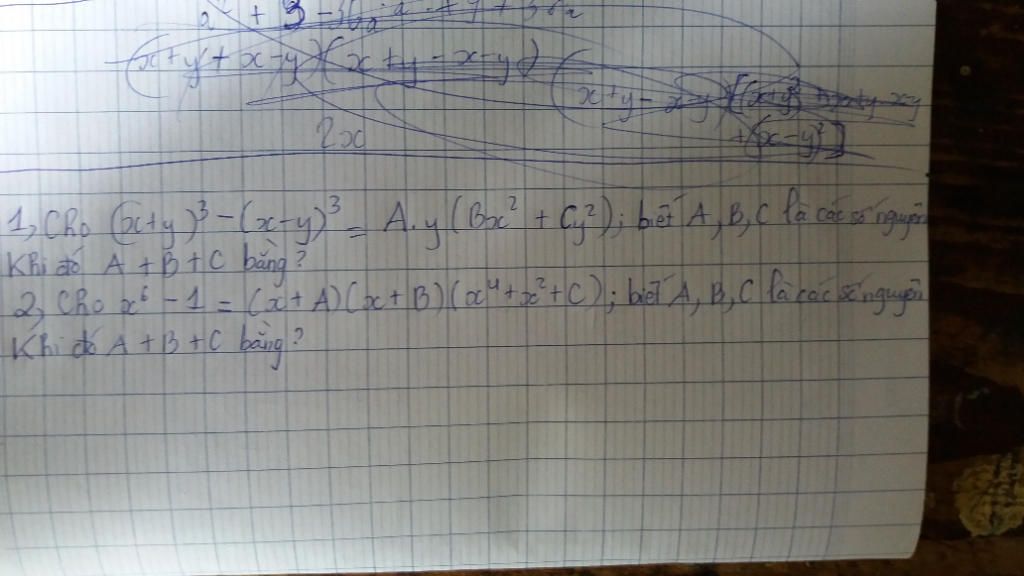 (x+y+x-y)(x+y-x-y)
2x
1, Cho (x+y)³-(x-y)³ = A.y(Bx²+Cy²); biết A, B, C là các số nguyên
Khi đó A+B+C bằng?
2, Cho x⁶-1 = (x+A)(x+B)(x⁴+x²+C); biết A, B, C là các số nguyên
Khi đó A+B+C bằng?